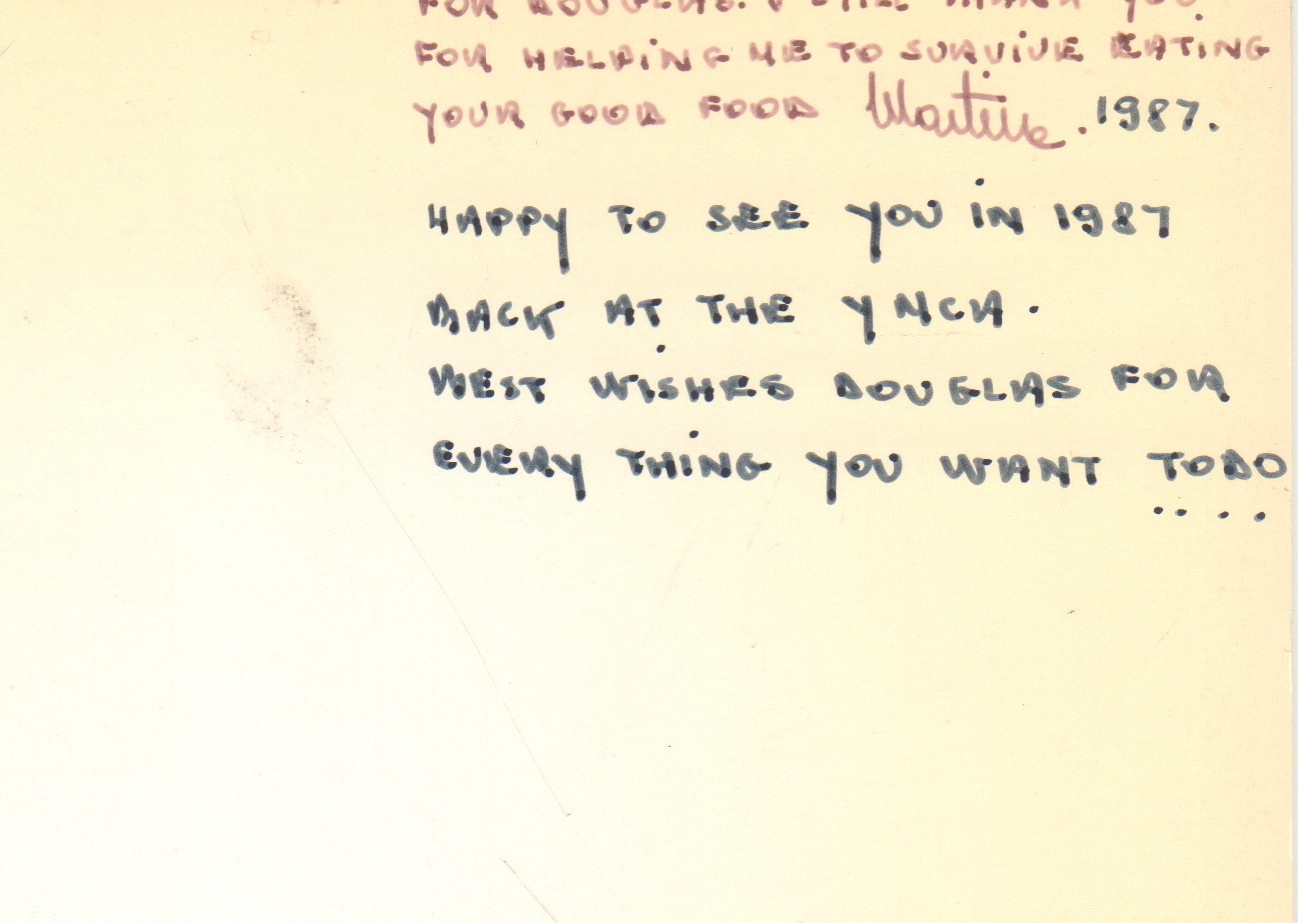 FOR DOUGLAS. I STILL THANK YOU
FOR HELPING ME TO SURVIVE EATING
YOUR GOOD FOOD Martine. 1987.
HAPPY TO SEE YOU iN 1987
BACK AT THE YMCA.
BEST WiSHES DOUGLAS FOR
EVERY THiNG YOU WANT TO DO
....